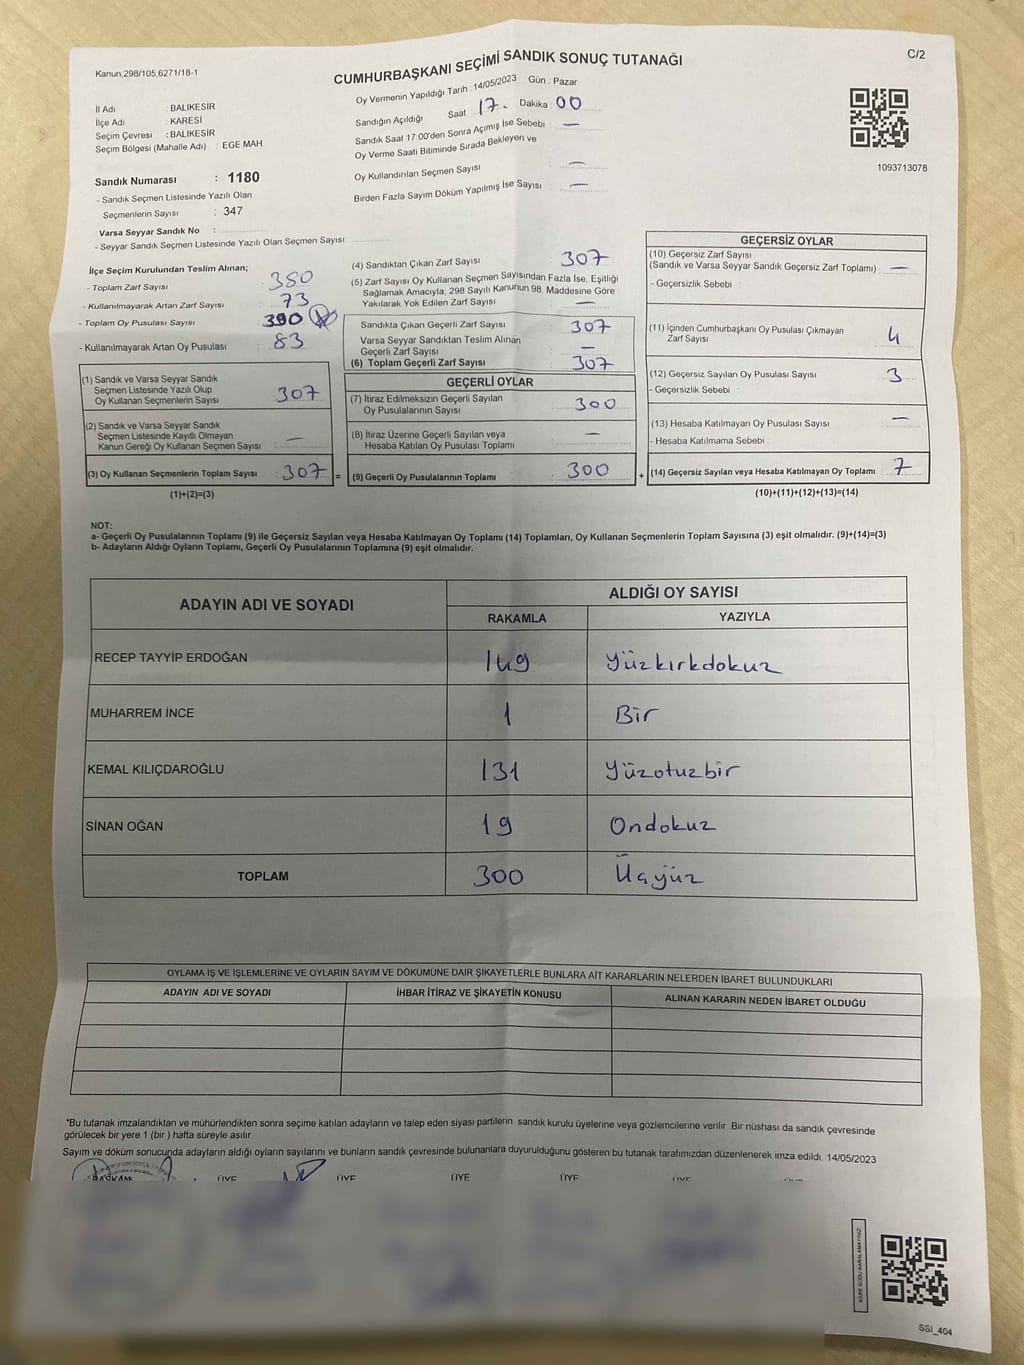 Kanun,298/105,6271/18-1
CUMHURBAŞKANI SEÇİMİ SANDIK SONUÇ TUTANAĞI
C/2
1093713078
İl Adı : BALIKESİR
İlçe Adı : KARESİ
Seçim Çevresi : BALIKESİR
Seçim Bölgesi (Mahalle Adı) : EGE MAH
Sandık Numarası : 1180
- Sandık Seçmen Listesinde Yazılı Olan
Seçmenlerin Sayısı : 347
Varsa Seyyar Sandık No :
- Seyyar Sandık Seçmen Listesinde Yazılı Olan Seçmen Sayısı
Oy Vermenin Yapıldığı Tarih : 14/05/2023 Gün : Pazar
Sandığın Açıldığı Saat 17. Dakika : 00
Sandık Saat 17:00'den Sonra Açımış İse Sebebi : —
Oy Verme Saati Bitiminde Sırada Bekleyen ve
Oy Kullandırılan Seçmen Sayısı : —
Birden Fazla Sayım Döküm Yapılmış İse Sayısı : —
İlçe Seçim Kurulundan Teslim Alınan;
- Toplam Zarf Sayısı : 380
- Kullanılmayarak Artan Zarf Sayısı : 73
- Toplam Oy Pusulası Sayısı : 390
- Kullanılmayarak Artan Oy Pusulası : 83
(1) Sandık ve Varsa Seyyar Sandık
Seçmen Listesinde Yazılı Olup
Oy Kullanan Seçmenlerin Sayısı : 307
(2) Sandık ve Varsa Seyyar Sandık
Seçmen Listesinde Kayıtlı Olmayan
Kanun Gereği Oy Kullanan Seçmen Sayısı : —
(3) Oy Kullanan Seçmenlerin Toplam Sayısı : 307 =
(1)+(2)=(3)
(4) Sandıktan Çıkan Zarf Sayısı : 307
(5) Zarf Sayısı Oy Kullanan Seçmen Sayısından Fazla İse, Eşitliği
Sağlamak Amacıyla, 298 Sayılı Kanunun 98. Maddesine Göre
Yakılarak Yok Edilen Zarf Sayısı : —
Sandıkta Çıkan Geçerli Zarf Sayısı : 307
Varsa Seyyar Sandıktan Teslim Alınan
Geçerli Zarf Sayısı : —
(6) Toplam Geçerli Zarf Sayısı : 307
GEÇERLİ OYLAR
(7) İtiraz Edilmeksizin Geçerli Sayılan
Oy Pusulalarının Sayısı : 300
(8) İtiraz Üzerine Geçerli Sayılan veya
Hesaba Katılan Oy Pusulası Toplamı : —
(9) Geçerli Oy Pusulalarının Toplamı : 300 +
GEÇERSİZ OYLAR
(10) Geçersiz Zarf Sayısı
(Sandık ve Varsa Seyyar Sandık Geçersiz Zarf Toplamı) : —
- Geçersizlik Sebebi :
(11) İçinden Cumhurbaşkanı Oy Pusulası Çıkmayan
Zarf Sayısı : 4
(12) Geçersiz Sayılan Oy Pusulası Sayısı : 3
- Geçersizlik Sebebi :
(13) Hesaba Katılmayan Oy Pusulası Sayısı : —
- Hesaba Katılmama Sebebi :
(14) Geçersiz Sayılan veya Hesaba Katılmayan Oy Toplamı : 7
(10)+(11)+(12)+(13)=(14)
NOT:
a- Geçerli Oy Pusulalarının Toplamı (9) ile Geçersiz Sayılan veya Hesaba Katılmayan Oy Toplamı (14) Toplamları, Oy Kullanan Seçmenlerin Toplam Sayısına (3) eşit olmalıdır. (9)+(14)=(3)
b- Adayların Aldığı Oyların Toplamı, Geçerli Oy Pusulalarının Toplamına (9) eşit olmalıdır.
ADAYIN ADI VE SOYADI ALDIĞI OY SAYISI
RAKAMLA YAZIYLA
RECEP TAYYİP ERDOĞAN 149 Yüzkırkdokuz
MUHARREM İNCE 1 Bir
KEMAL KILIÇDAROĞLU 131 Yüzotuzbir
SİNAN OĞAN 19 Ondokuz
TOPLAM 300 Üçyüz
OYLAMA İŞ VE İŞLEMLERİNE VE OYLARIN SAYIM VE DÖKÜMÜNE DAİR ŞİKAYETLERLE BUNLARA AİT KARARLARIN NELERDEN İBARET BULUNDUKLARI
ADAYIN ADI VE SOYADI İHBAR İTİRAZ VE ŞİKAYETİN KONUSU ALINAN KARARIN NEDEN İBARET OLDUĞU
*Bu tutanak imzalandıktan ve mühürlendikten sonra seçime katılan adayların ve talep eden siyasi partilerin sandık kurulu üyelerine veya gözlemcilerine verilir. Bir nüshası da sandık çevresinde
görülecek bir yere 1 (bir ) hafta süreyle asılır.
Sayım ve döküm sonucunda adayların aldığı oyların sayılarını ve bunların sandık çevresinde bulunanlara duyurulduğunu gösteren bu tutanak tarafımızdan düzenlenerek imza edildi. 14/05/2023
BAŞKAN ÜYE ÜYE ÜYE ÜYE ÜYE
KARE KODU KARALAMAYINIZ!
SSI_404